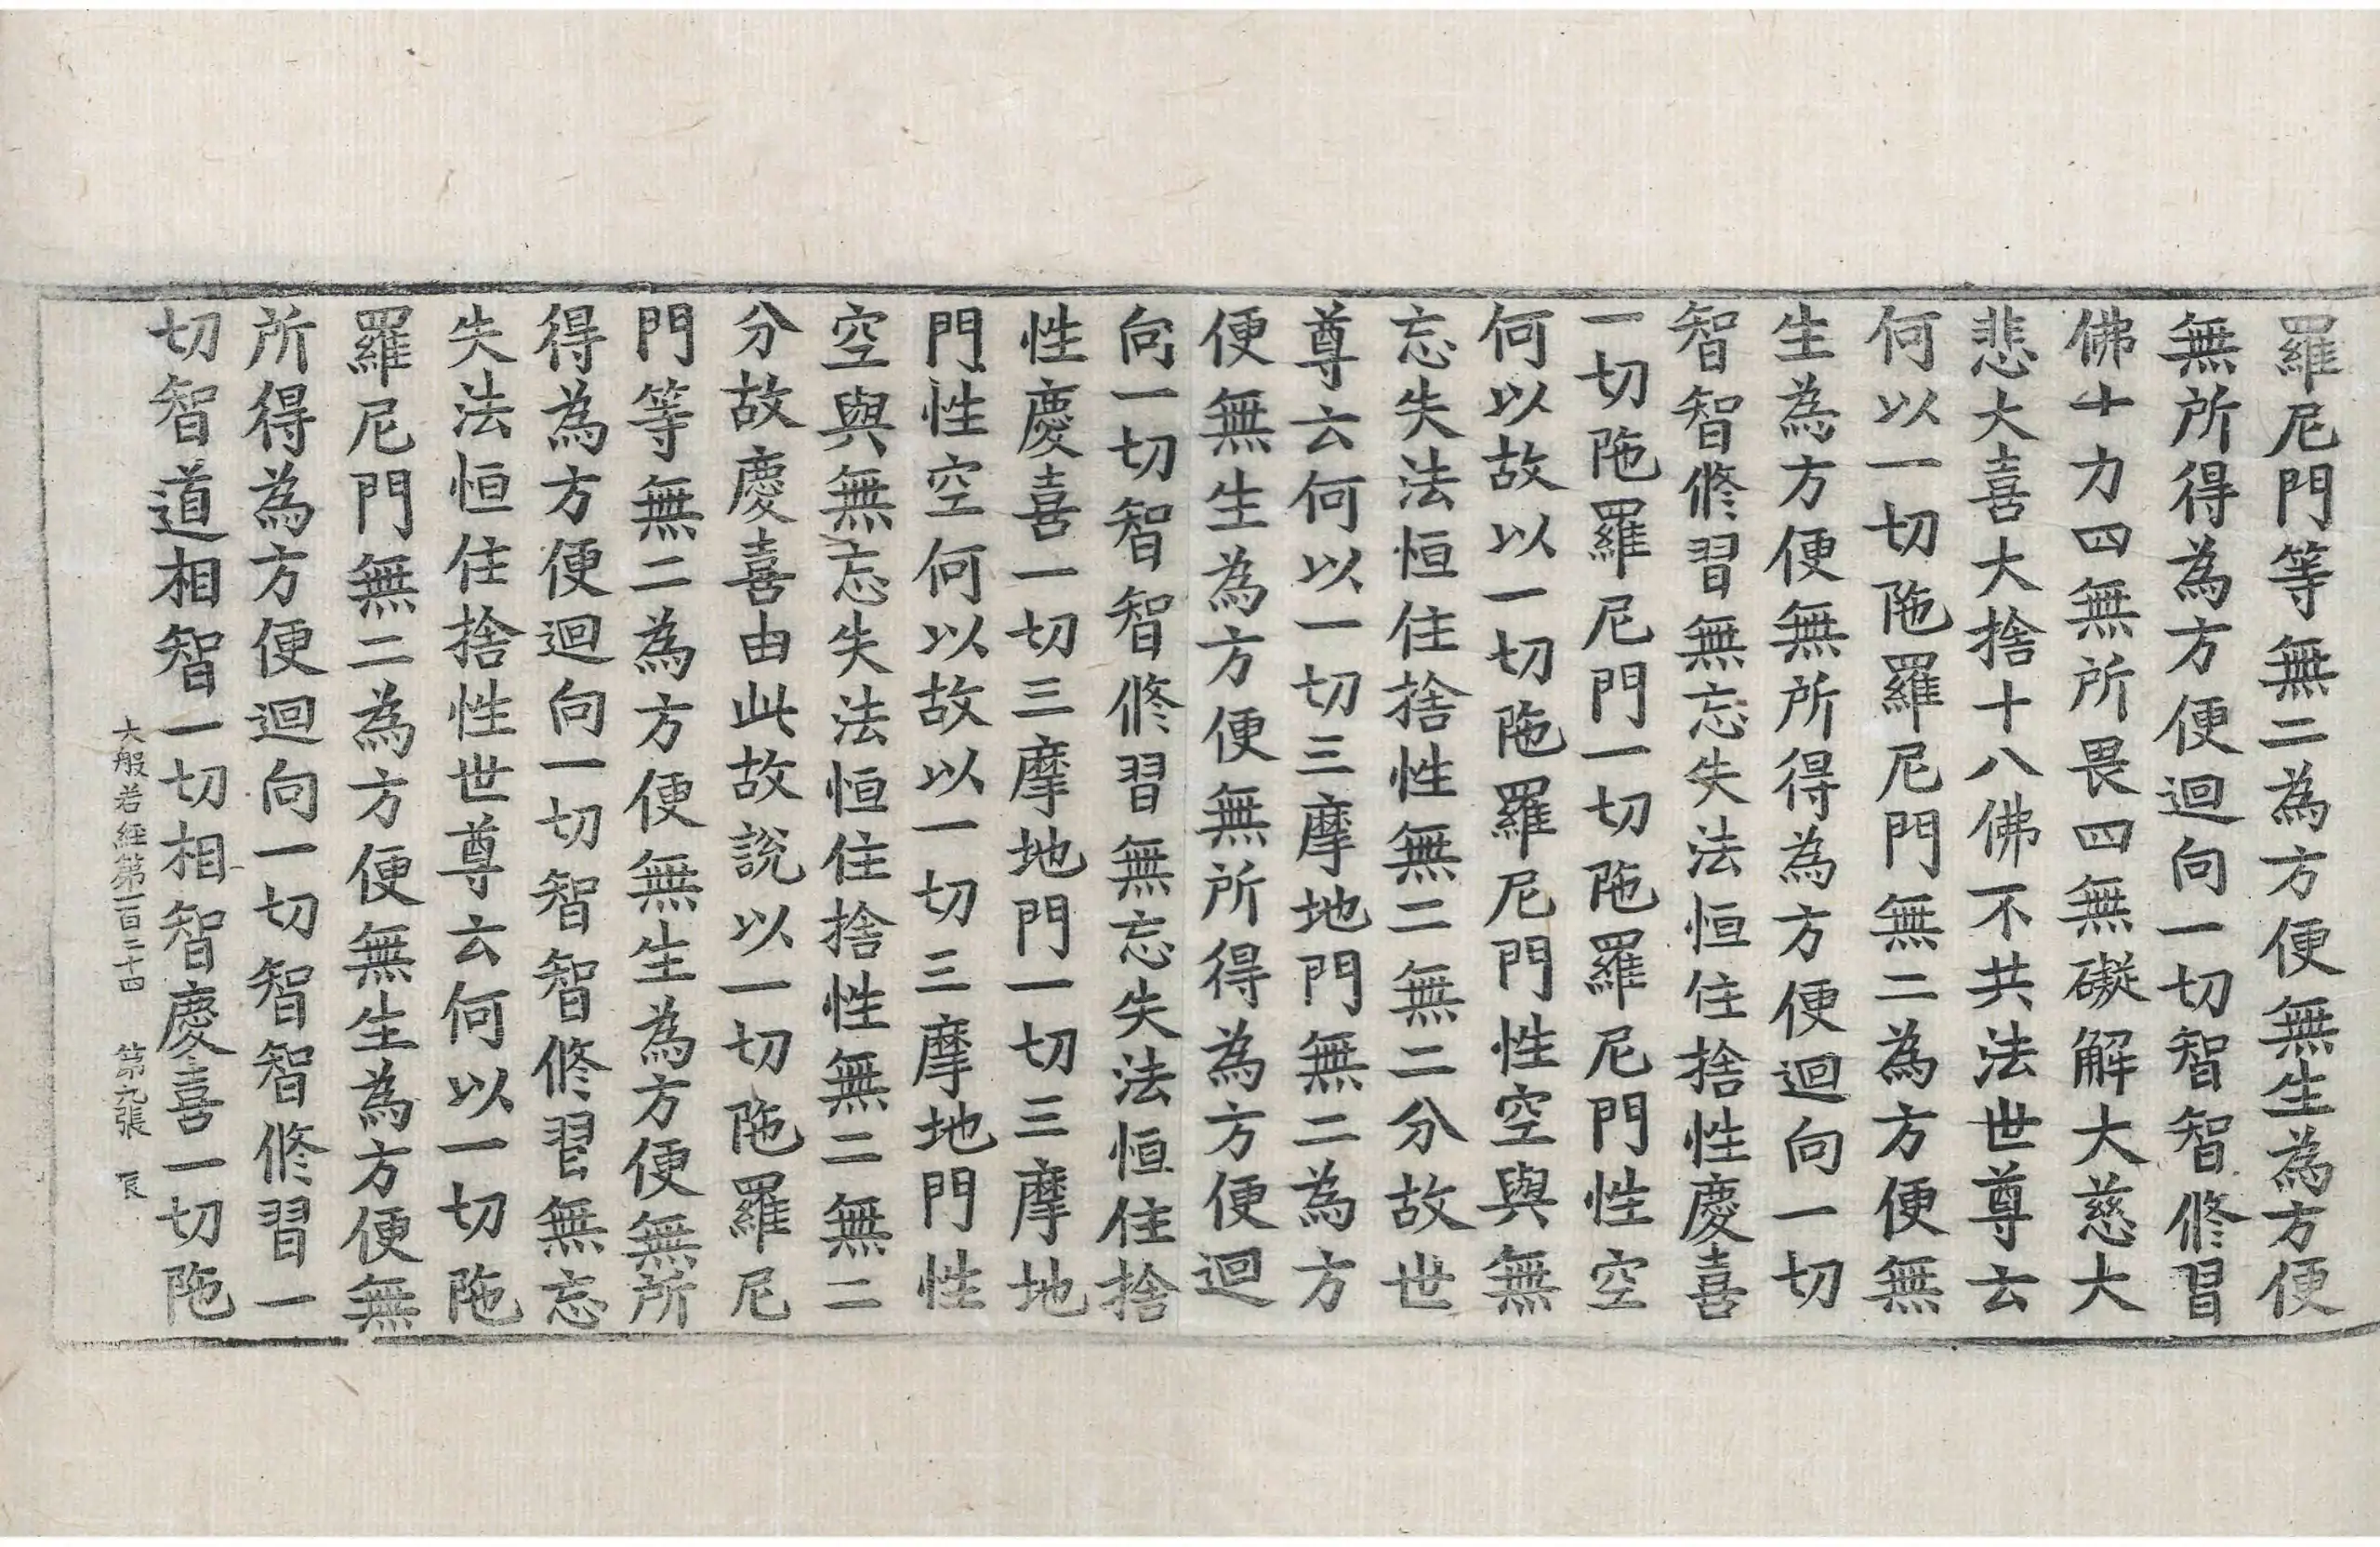 羅尼門等無二為方便無生為方便
無所得為方便迴向一切智智修習
佛十力四無所畏四無礙解大慈大
悲大喜大捨十八佛不共法世尊云
何以一切陁羅尼門無二為方便無
生為方便無所得為方便迴向一切
智智修習無忘失法恒住捨性慶喜
一切陁羅尼門一切陁羅尼門性空
何以故以一切陁羅尼門性空與無
忘失法恒住捨性無二無二分故世
尊云何以一切三摩地門無二為方
便無生為方便無所得為方便迴
向一切智智修習無忘失法恒住捨
性慶喜一切三摩地門一切三摩地
門性空何以故以一切三摩地門性
空與無忘失法恒住捨性無二無二
分故慶喜由此故說以一切陁羅尼
門等無二為方便無生為方便無所
得為方便迴向一切智智修習無忘
失法恒住捨性世尊云何以一切陁
羅尼門無二為方便無生為方便無
所得為方便迴向一切智智修習一
切智道相智一切相智慶喜一切陁
大般若經第一百二十四 第九張 辰